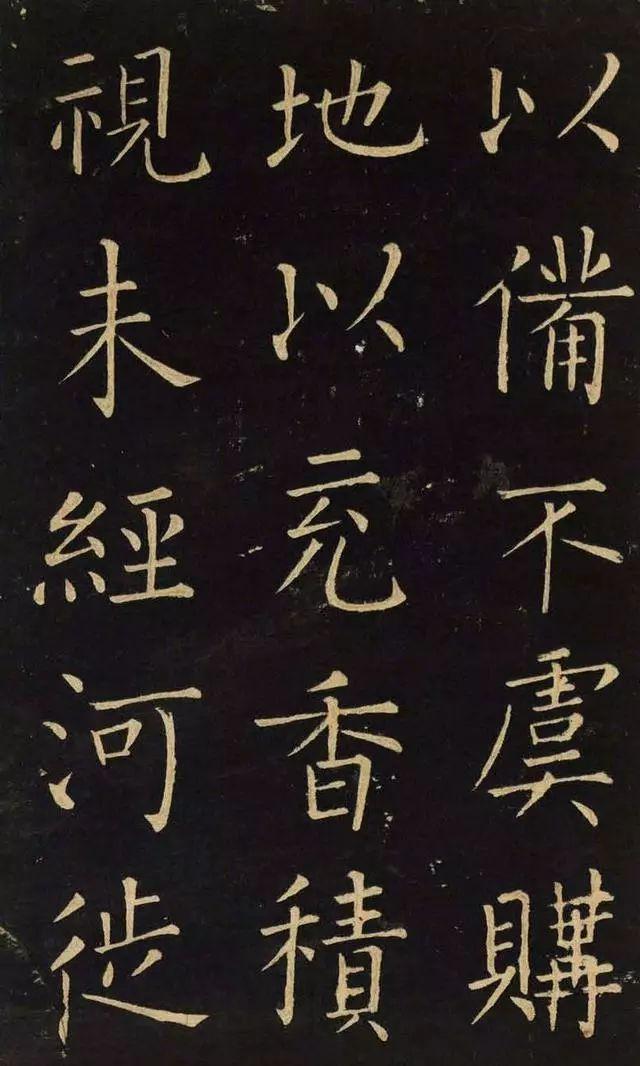 以備不虞購
地以充香積
視未經河徙